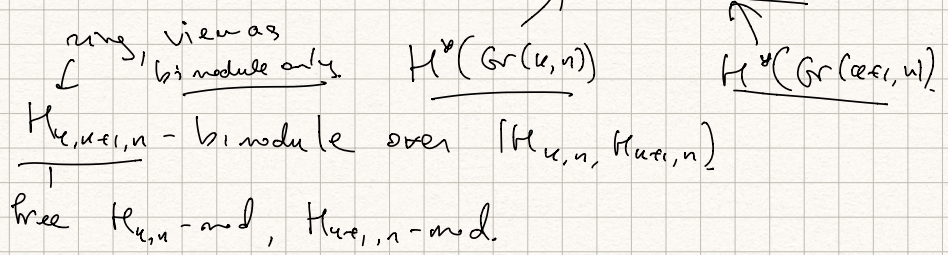 ring, view as
bimodule only
H*(Gr(k,n)) H*(Gr(k+1,n))
H_{k,k+1,n} - bimodule over (H_{k,n}, H_{k+1,n})
free H_{k,n}-mod, H_{k+1,n}-mod.